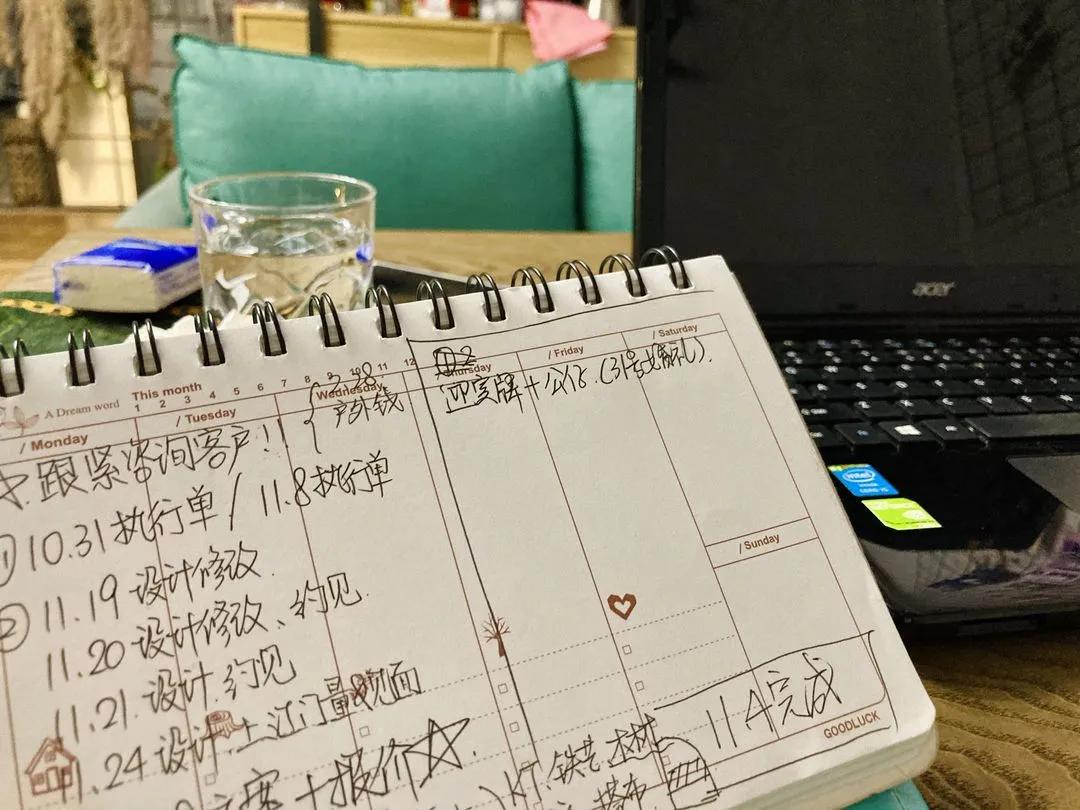 acer
intel
A Dream word
This month
1 2 3 4 5 6 7 8 9 10 11 12
/ Monday
/ Tuesday
Wednesday
Thursday
/ Friday
/ Saturday
/ Sunday
户外钱
迎宾牌+公仔.(31号婚礼).
跟紧咨询客户!
① 10.31 执行单 / 11.8 执行单
② 11.19 设计修改
11.20 设计修改、约见
11.21. 设计.约见
11.24 设计.+江门量
面
+报价☆.
铁艺
11.4完成
GOODLUCK